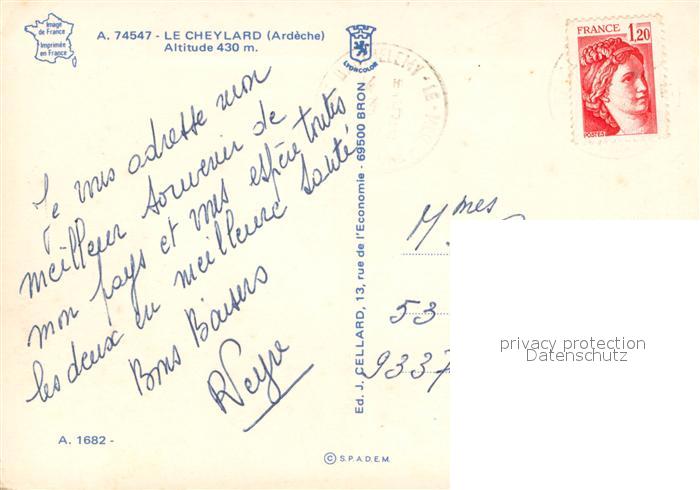 Image de France
Imprimée en France
A. 74547 - LE CHEYLARD (Ardèche)
Altitude 430 m.
LYONCOLOR
FRANCE 1,20
POSTES
Je vous adresse mon
meilleur souvenir de
mon pays et vous espère toutes
les deux en meilleure santé
Bons Baisers
R Peyre
A. 1682 -
Ed. J. CELLARD, 13, rue de l'Economie - 69500 BRON
Mmes
53
9337
privacy protection
Datenschutz
© S.P.A.D.E.M.